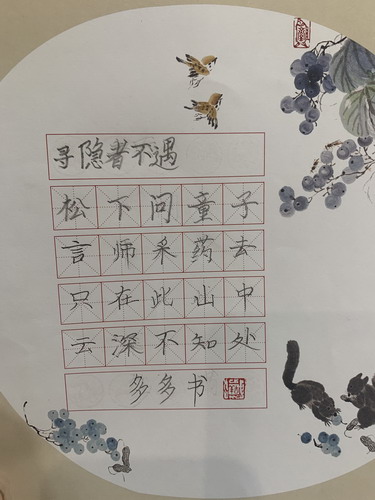 寻隐者不遇
松下问童子
言师采药去
只在此山中
云深不知处
多多书